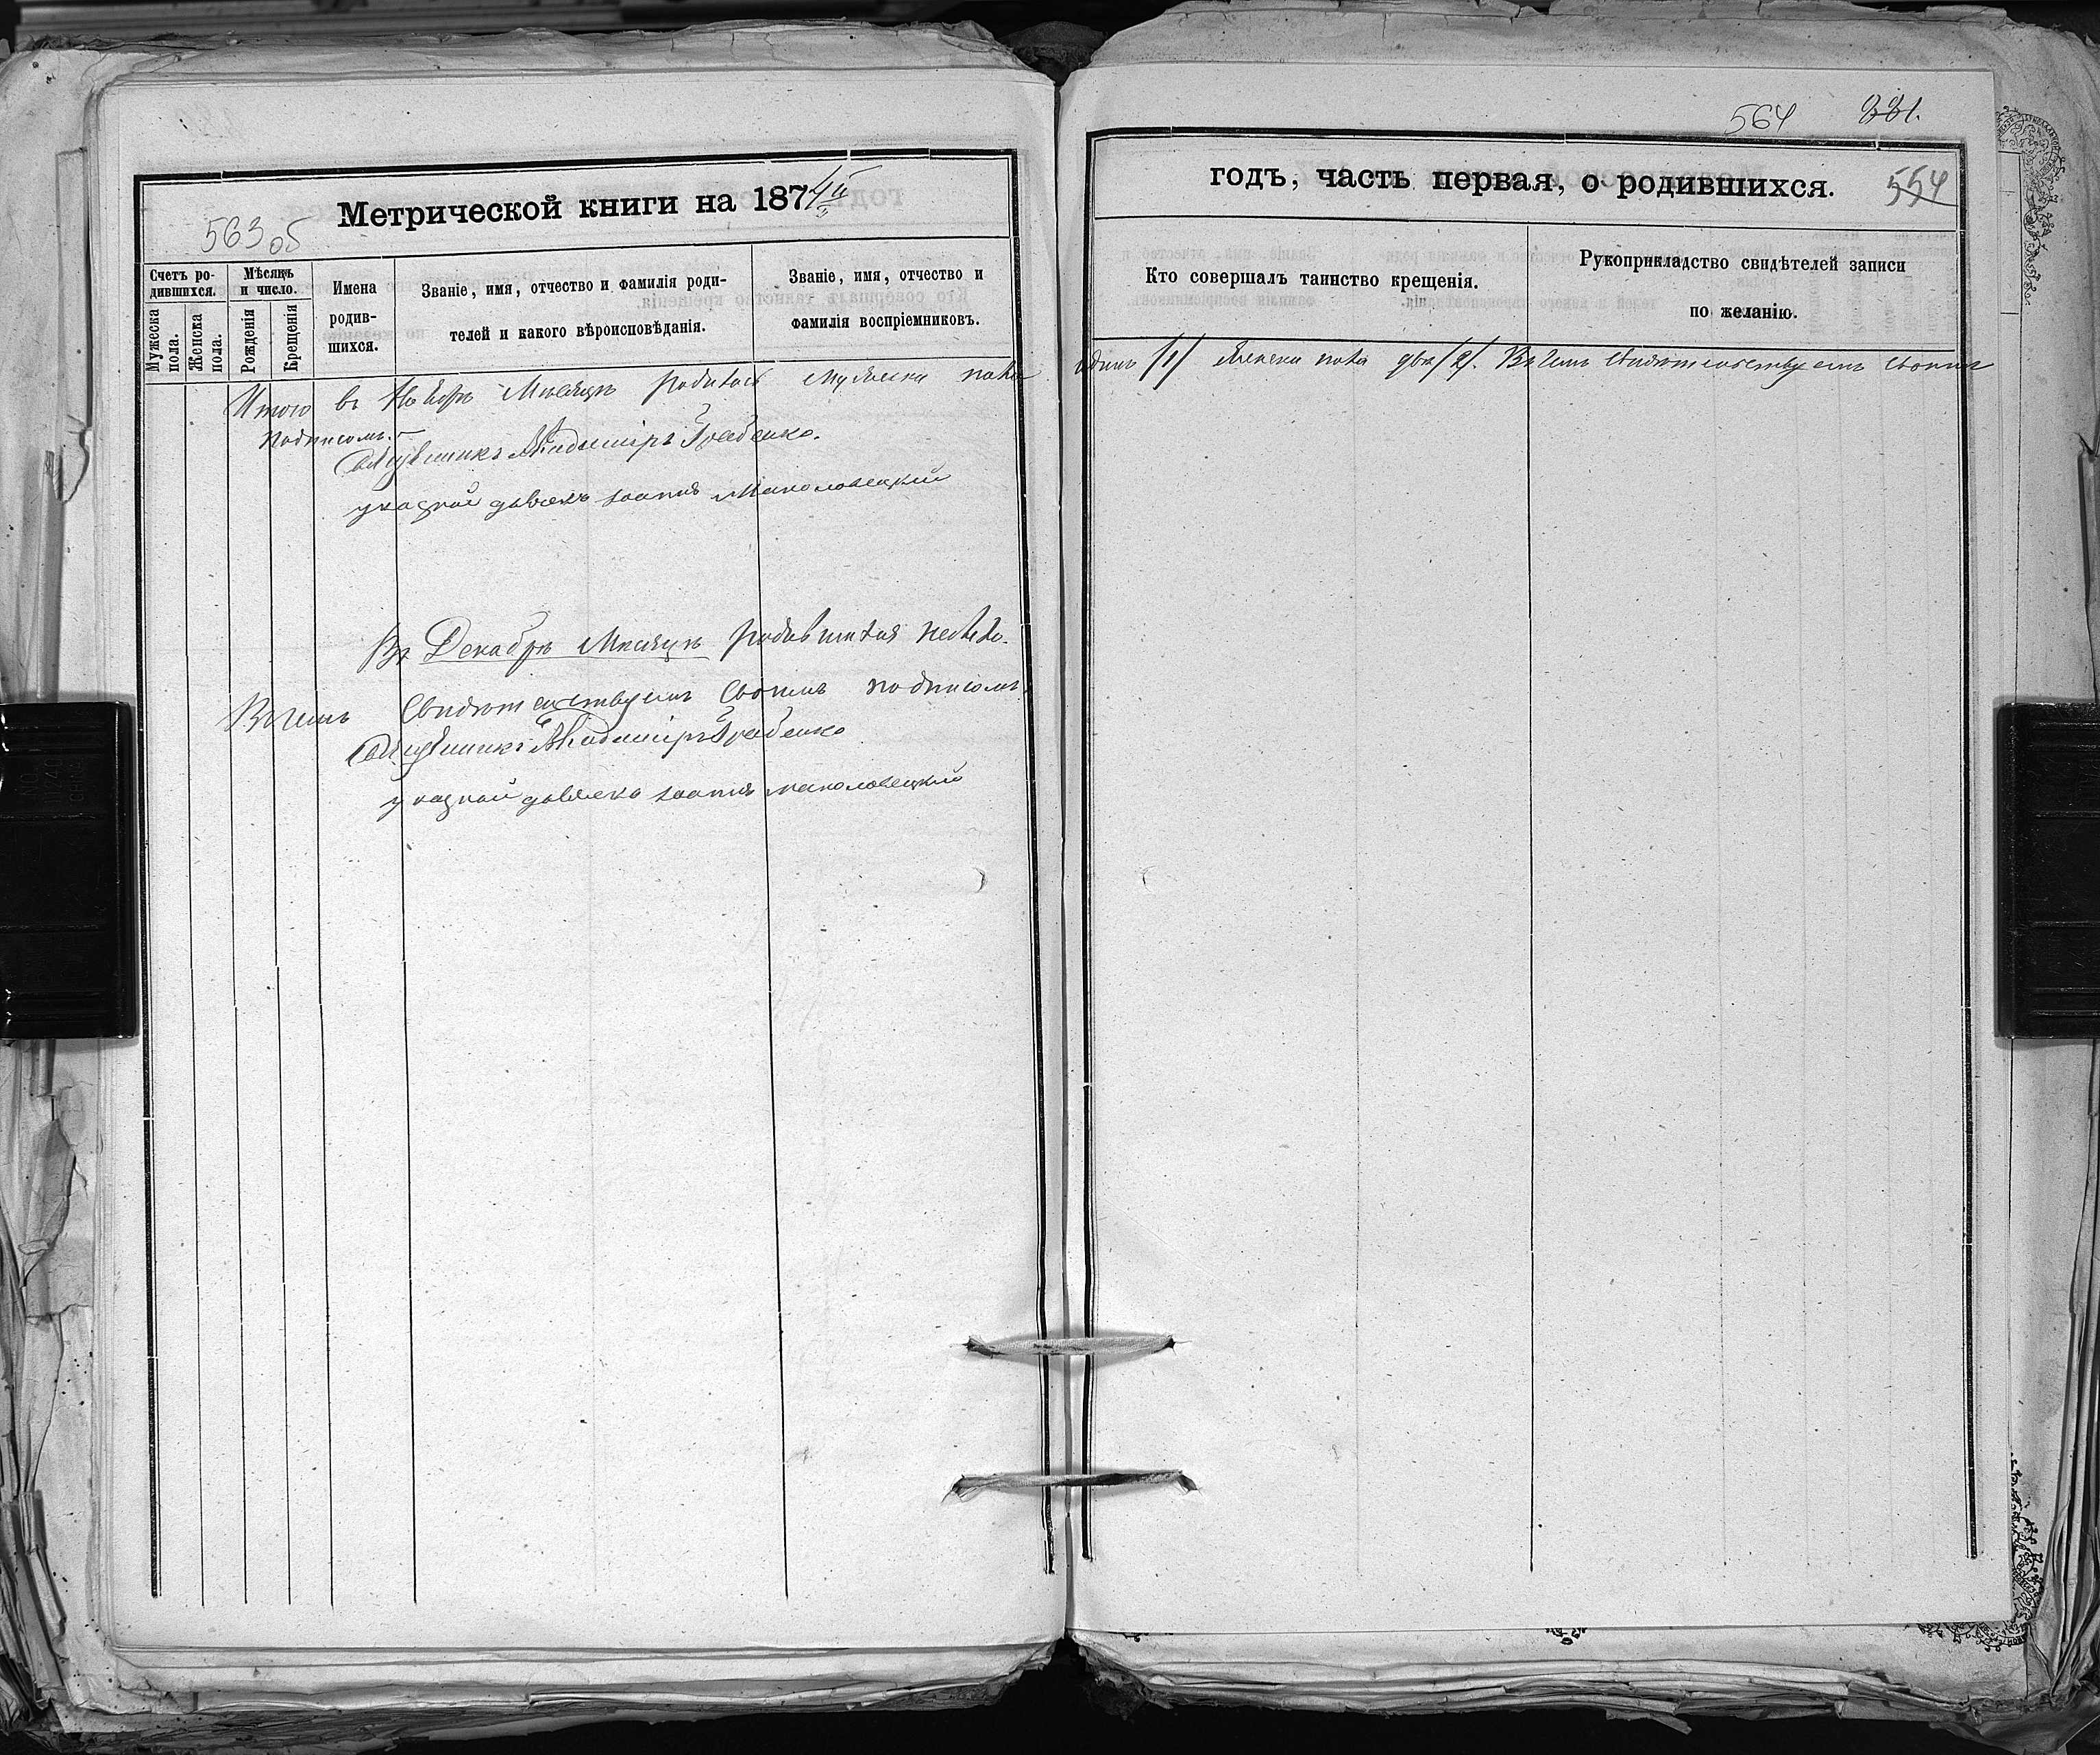 564 881.
Метрической книги на 1874
563 об
годъ, часть первая, о родившихся.
554
Счетъ ро-
дившихся.
Мужеска пола.
Женска пола.
Мѣсяцъ
и число.
Рожденія
Крещенія
Имена
родив-
шихся.
Званіе, имя, отчество и фамилія роди-
телей и какого вѣроисповѣданія.
Званіе, имя, отчество и
фамилія воспріемниковъ.
Кто совершалъ таинство крещенія.
Рукоприкладство свидѣтелей записи
по желанію.
Итого въ Ноябрѣ Мѣсяцѣ родилось мужеска пола
одинъ /1/ женска пола два /2/. Въ чемъ свидѣтельствуемъ своимъ
подписомъ.
Священникъ Владиміръ Грабенко.
указной дьячекъ Іоаннъ
Въ Декабрѣ Мѣсяцѣ родившихся небыло.
Въ чемъ свидѣтельствуемъ своимъ подписомъ
Священникъ Владиміръ Грабенко
указной дьячекъ Іоаннъ